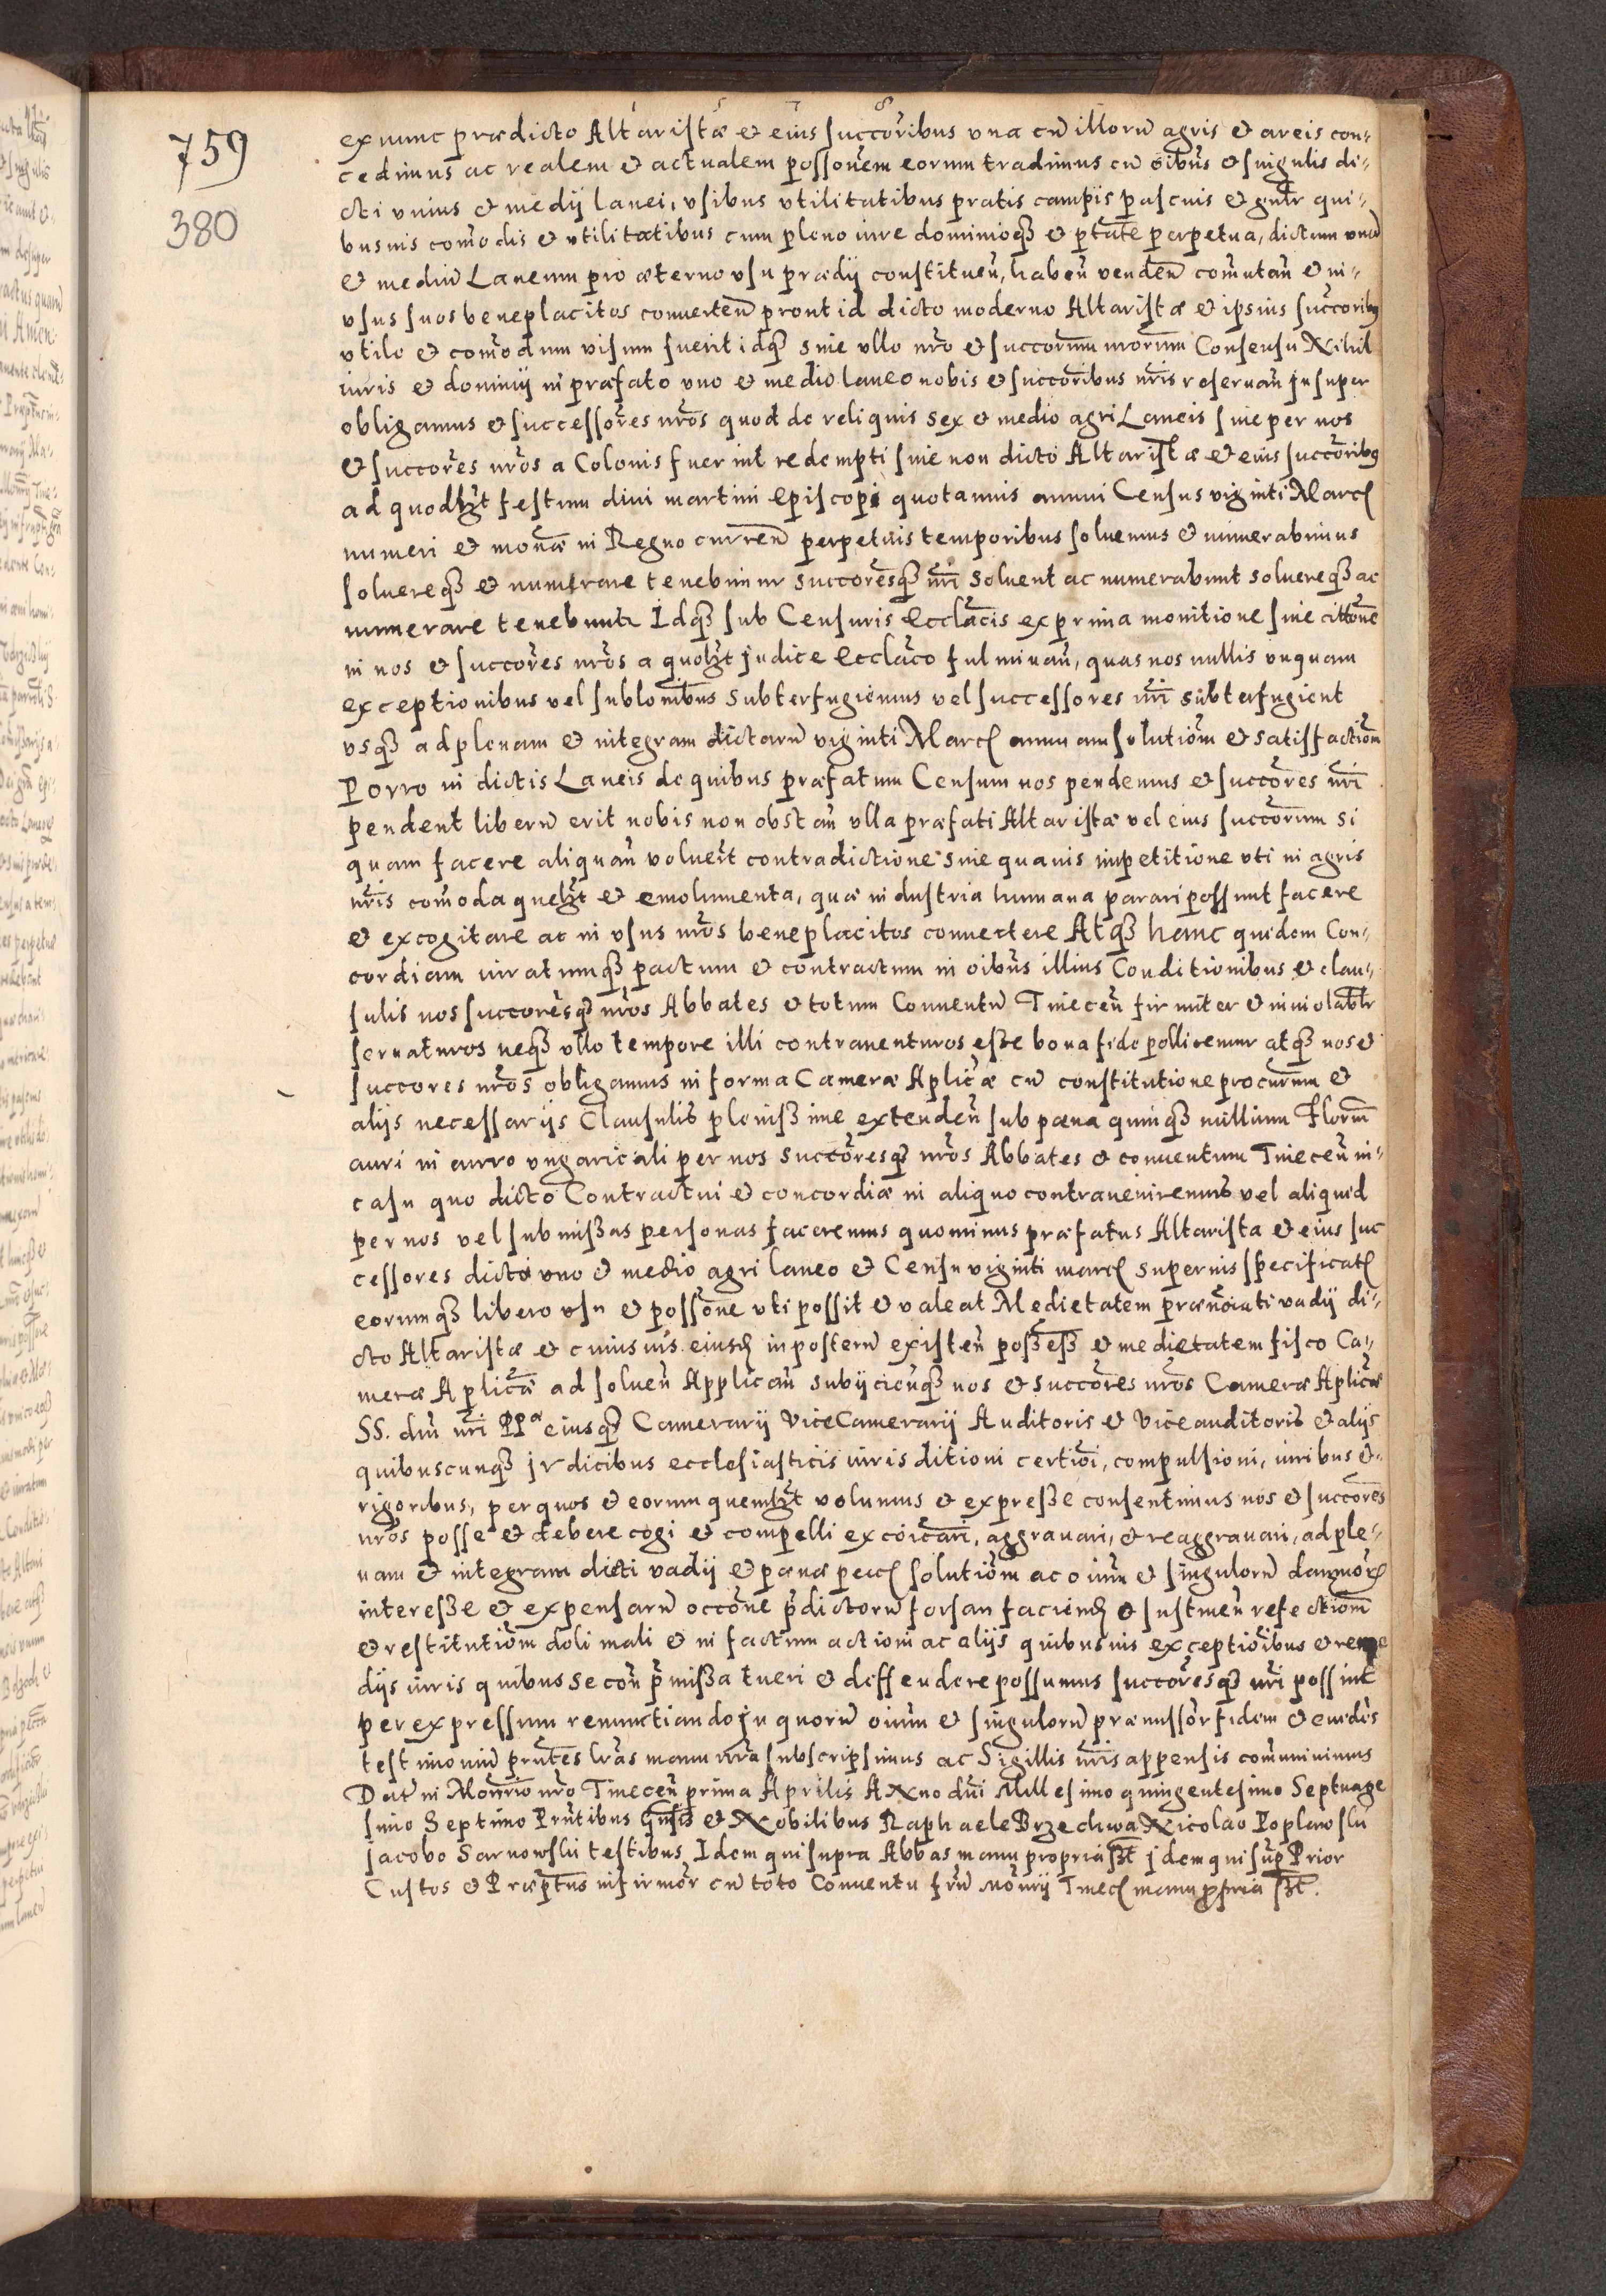 759
380
ex nunc prædicto Altaristæ et eius succoribus vna cũ illorũ agris et areis con-
cedimus ac realem et actualem possonem eorum tradimus cũ oibus et singulis di-
cti vnius et medij lanei, vsibus vtilitatibus pratis campis pascuis et gnlr qui-
busuis comodis et vtilitatibus cum pleno iure dominioq3 et ptate perpetua, dictum vnũ
et mediũ Laneum pro æterno vsu prædij constituen, haben venden comutan et in-
vsus suos beneplacitos conuerten prout id dicto moderno Altaristæ et ipsius succoribus
vtile et comodum visum fuerit idq3 sine vllo nro et succorum nrorum Consensu Nihil
iuris et dominij in præfato vno et medio laneo nobis et succoribus nris reseruan Insuper
obligamus et successores nros quod de reliquis sex et medio agri Laneis siue per nos
et succores nros a Colonis fuerint redempti siue non dicto Altaristæ et eius succoribus
ad quodlzt festum diui martini Episcopi quotannis annui Census viginti Marc
numeri et monæ in Regno curren perpetuis temporibus soluemus et numerabimus
soluereq3 et numerare tenebimur succoresq3 nri soluent ac numerabunt soluereq3 ac
numerare tenebuntr Idq3 sub Censuris Ecclacis ex prima monitione siue cittone
in nos et succores nros a quolzt judice Ecclaco fulminan, quas nos nullis vnquam
exceptionibus vel sublonibus subterfugiemus vel successores nri subterfugient
vsq3 ad plenam et integram dictarũ viginti Marc annuam solutiom et satisfactiom
Porro in dictis Laneis de quibus præfatum Censum nos pendemus et succores nri
pendent liberũ erit nobis non obstan vlla præfati Altaristæ vel eius succorum si
quam facere aliquan voluerit contradictione siue quauis impetitione vti in agris
nris comoda quelzt et emolumenta, quæ industria humana parari possunt facere
et excogitare ac in vsus nros beneplacitos conuertere Atq3 hanc quidem Con-
cordiam iuratumq3 pactum et contractum in oibus illius Conditionibus et clau-
sulis nos succoresq3 nros Abbates et totum Conuentũ Tinecen firmiter et inuiolabtr
seruaturos neq3 vllo tempore illi contrauenturos esse bona fide pollicemur atq3 nos et
succores nros obligamus in forma Cameræ Aplicæ cũ constitutione procurum et
alijs necessarijs Clausulis plenissime extenden sub pæna quinq3 millium Florm
auri in aurro vngaricali per nos succoresq3 nros Abbates et conuentum Tinecen in-
casu quo dicto Contractui et concordiæ in aliquo contraueniremus vel aliquid
per nos vel submissas personas faceremus quominus præfatus Altarista et eius suc
cessores dicto vno et medio agri laneo et Censu viginti marc supernis specificatis
eorumq3 libero vsu et possone vti possit et valeat Medietatem prænoiati vadij di-
cto Altaristæ et cuiusuis eiusd in posterũ existen possess et medietatem fisco Ca-
meræ Aplicæ ad soluen Applican subijcienq3 nos et succores nros Cameræ Aplicæ
SS. dni nri PPæ eiusq3 Camerarij ViceCamerarij Auditoris et Viceauditoris et alijs
quibuscunq3 jvdicibus ecclesiasticis iurisditioni certioi, compulsioni, iuribus et
rigoribus, per quos et eorum quemlzt volumus et expresse consentimus nos et succores
nros posse et debere cogi et compelli excoicari, aggrauari, et reaggrauari, ad ple-
nam et integram dicti vadij et pænæ solutiom ac oium et singulorũ damnorũ
interesse et expensarũ occone pdictorũ forsan faciend et sustinen refectiom
et restitutiom doli mali et in factum actioni ac alijs quibusuis exceptioibus et reme
dijs iuris quibus se con pmissa tueri et deffendere possumus succoresq3 nri possint
per expressum renunctiando In quorũ oium et singulorũ præmissor fidem et euides
testimoniũ pntes lras manu nra subscripsimus ac Sigillis nris appensis comuniuimus
Dat in Monrio nro Tinecen prima Aprilis Anno dni Millesimo quingentesimo Septuage
simo Septimo Pntibus Gnsis et Nobilibus Raphaele Brzechwa Nicolao Poplawski
Jacobo Sarnowski testibus Idem qui supra Abbas manu propria szt jdem qui sup Prior
Custos et Præptus infirmor cũ toto Conuentu frũ Monrij Tinec manu ppria szt.